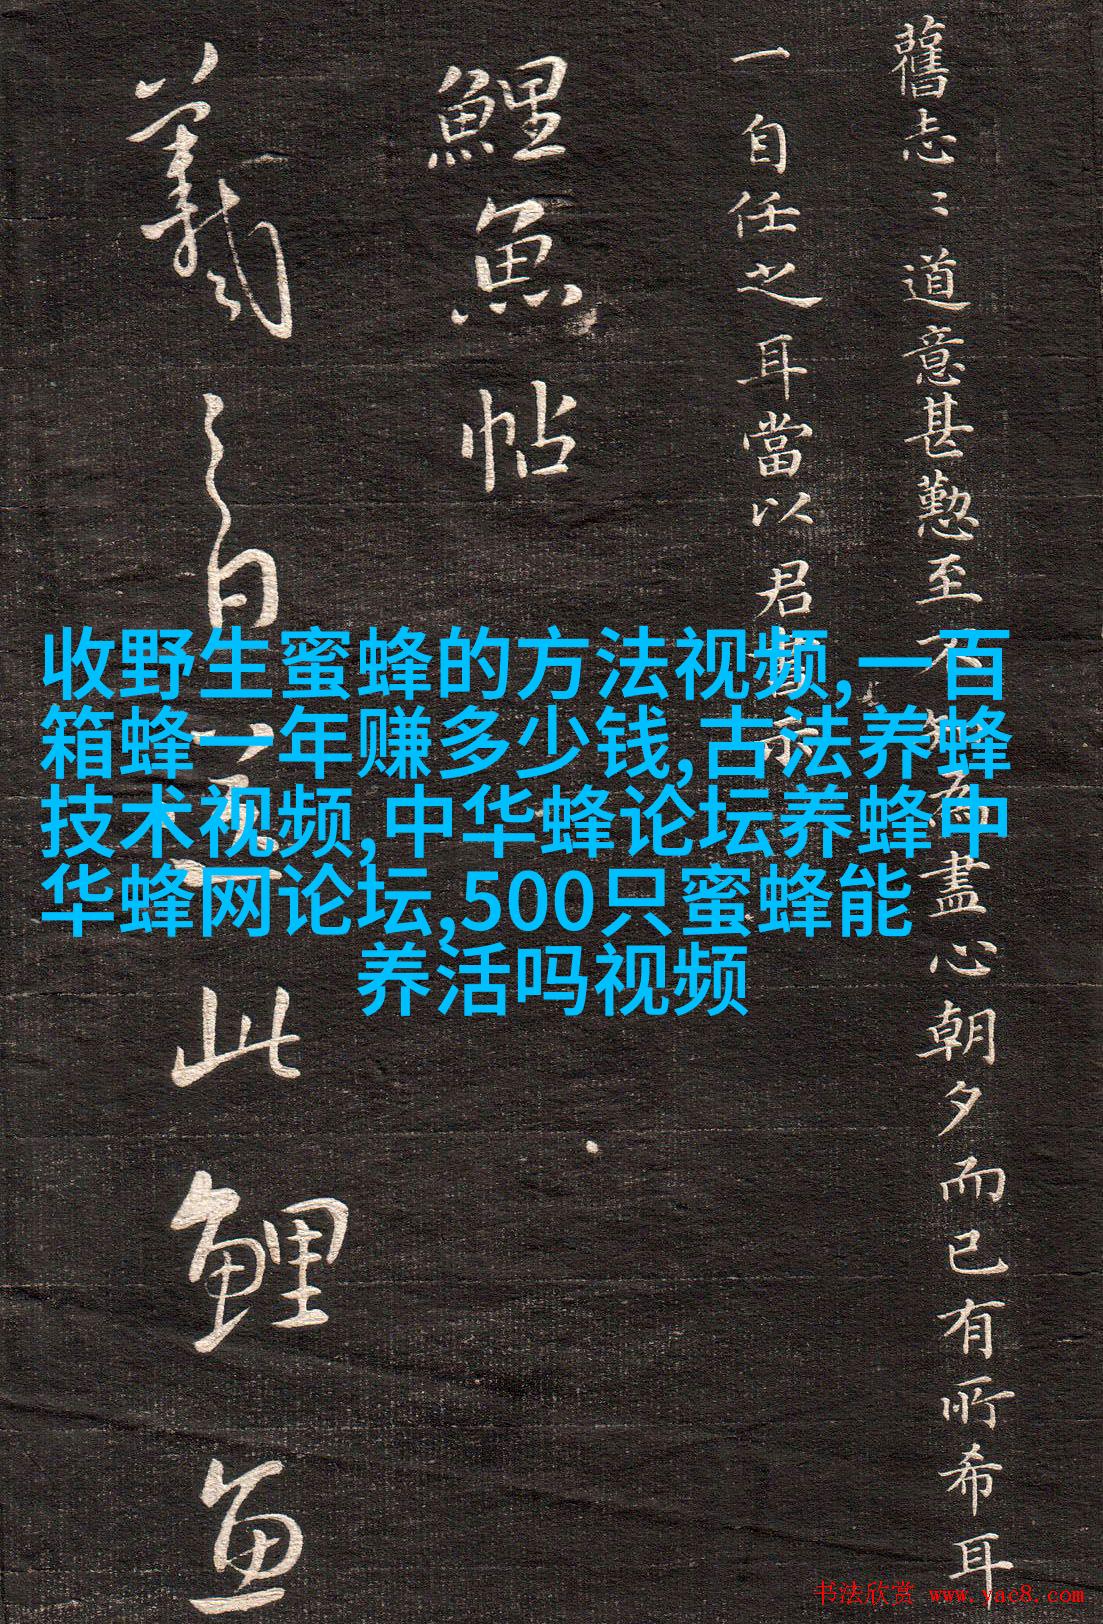 舊志〻道意甚懃至不
盡心朝夕而已有所希耳
一自任之耳當以君
示
鯉魚帖
羲之白
此鯉魚
收野生蜜蜂的方法视频,一百
箱蜂一年赚多少钱,古法养蜂
技术视频,中华蜂论坛养蜂中
华蜂网论坛,500只蜜蜂能
养活吗视频
书法欣赏 www.yac8.com